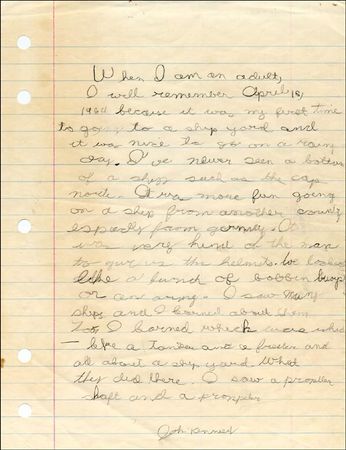 When I am an adult,
I will remember April 18,
1964 because it was my first time
to going to a ship yard and
it was nice to go on a rainy
day. I've never seen a bottom
of a ship such as the cap
norte. It was more fun going
on a ship from another country
espacly from germny. It
was very kind of the man
to us the helmets. We looked
like a bunch of bobbin
or an army. I saw many
ships and I learned about them
too. I learned which was which
— like a tanker and a freeter and
all about a ship yard. What
they did there. I saw a propeller
shaft and a propeler